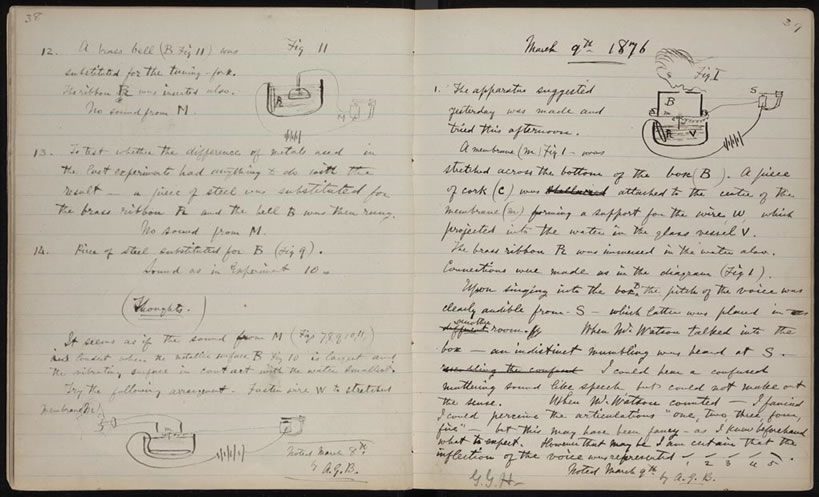 38
12. A brass bell (B Fig 11) was
substituted for the tuning-fork.
The ribbon R was inserted also.
No sound from M.
Fig 11
R
M
13. To test whether the difference of metals used in
the last experiments had anything to do with the
result — a piece of steel was substituted for
the brass ribbon R and the bell B was then rung.
No sound from M.
14. Piece of steel substituted for B (Fig 9).
Sound as in Experiment 10.
(Thoughts.)
It seems as if the sound from M (Figs 7, 8, 9, 10, 11,)
loudest when the metallic surface B Fig 10 is largest and
the vibrating surface in contact with the water smallest.
Try the following arrangement. Fasten wire W to stretched
membrane
Noted March 8th
by A.G.B.
March 9th 1876
Fig 1
B
S
V
1. The apparatus suggested
yesterday was made and
tried this afternoon.
A membrane (m) Fig 1 — was
stretched across the bottom of the box (B). A piece
of cork (c) was attached to the centre of the
membrane (m) forming a support for the wire W, which
projected into the water in the glass vessel V.
The brass ribbon R was immersed in the water also.
Connections were made as in the diagram (Fig 1).
Upon singing into the box, the pitch of the voice was
clearly audible from S — which latter was placed in
another room. When Mr. Watson talked into the
box — an indistinct mumbling was heard at S. —
I could hear a confused
muttering sound like speech but could not make out
the sense. When Mr. Watson counted — I fancied
I could perceive the articulations "one, two, three, four,
five" — but this may have been fancy — as I knew beforehand
what to expect. However that may be I am certain that the
inflection of the voice was represented
1 2 3 4 5
G.G.H.
Noted March 9th
by A.G.B.